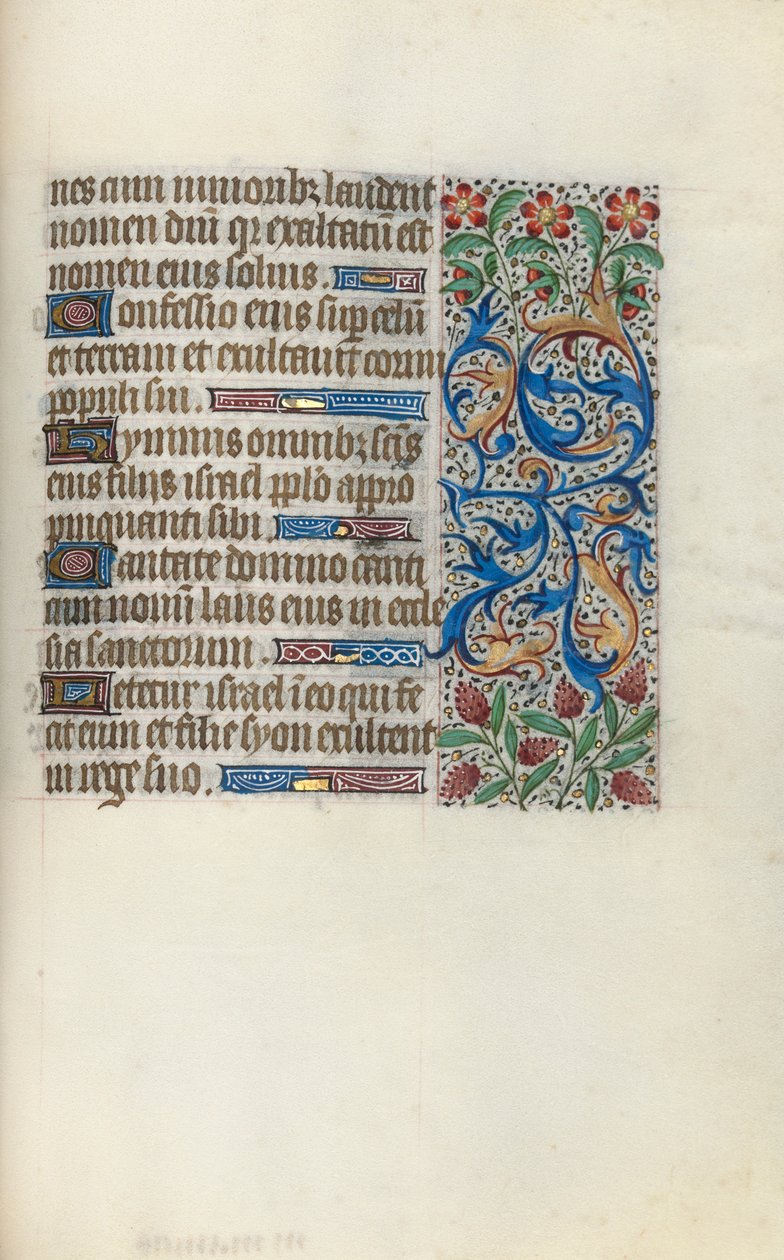 nes cum iuniorib⁊ laudent
nomen dñi qr exaltatũ est
nomen eius solius.
Confessio eius sup celũ
et terram et exultauit cornu
populi sui.
Hymnus omnib⁊ scis
eius filijs israel pplo appro
pinquanti sibi.
Cantate domino canti
cum nouũ laus eius in eccle
sia sanctorum.
Letetur israel ĩ eo qui fe
cit eum et filie syon exultent
in rege suo.